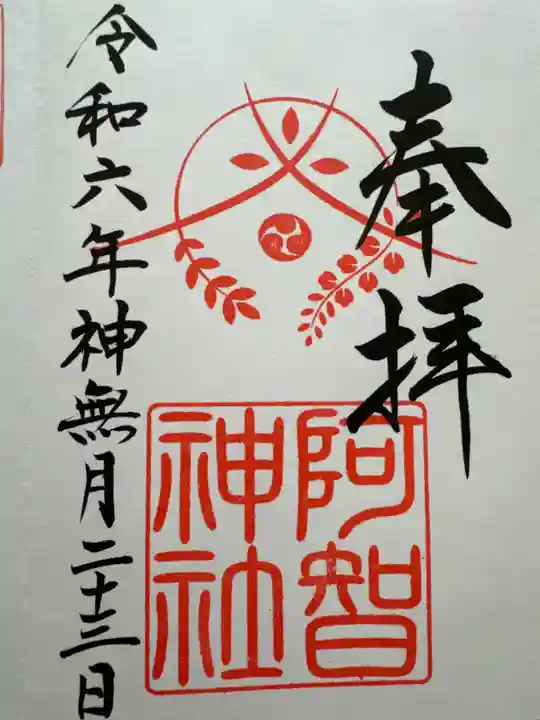 奉拝
阿智
神社
令和六年神無月二十三日